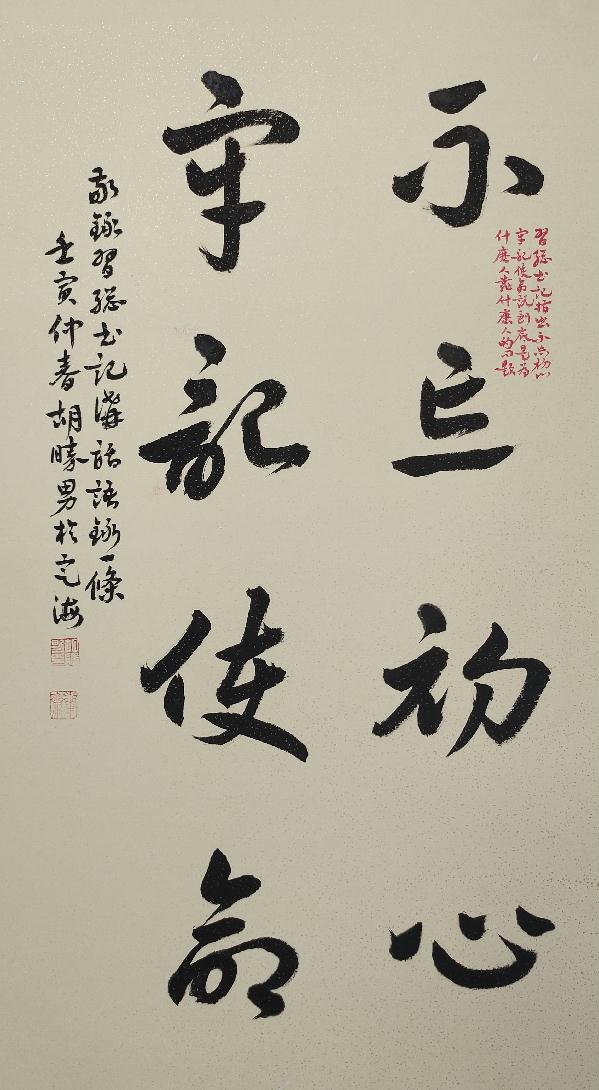 不忘初心
習總书記指出不忘初心
牢記使命説到底是為
什麽人靠什麽人的问題
牢記使命
敬錄習總书記講話語錄一條
壬寅仲春胡暁男於定海